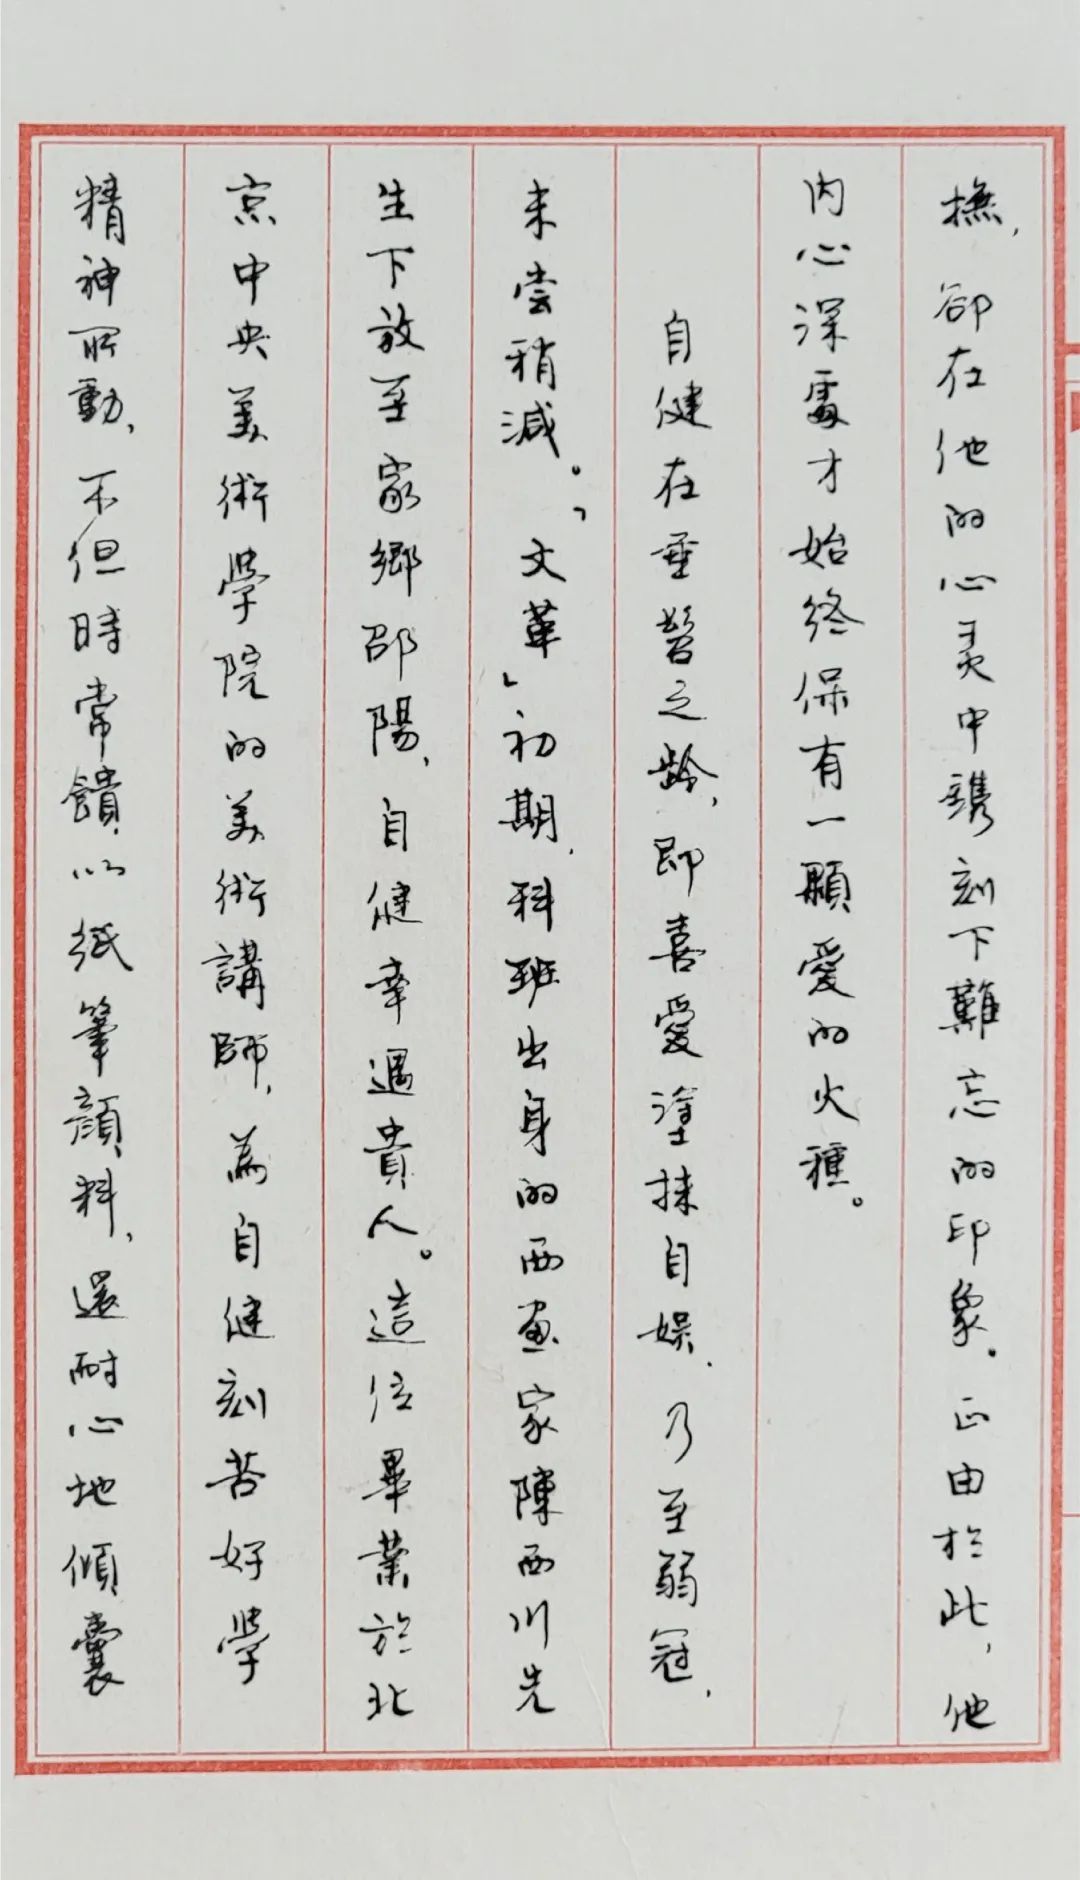 撫，卻在他的心灵中鐫刻下難忘的印象。正由於此，他
内心深處才始終保有一顆愛的火種。
自健在垂髫之齡，即喜愛塗抹自娱，乃至弱冠，
未嘗稍減。「文革」初期，科班出身的西畫家陳西川先
生下放至家鄉邵陽，自健幸遇貴人。這位畢業於北
京中央美術學院的美術講師，為自健刻苦好學
精神所動，不但時常饋以紙筆顔料，還耐心地傾囊